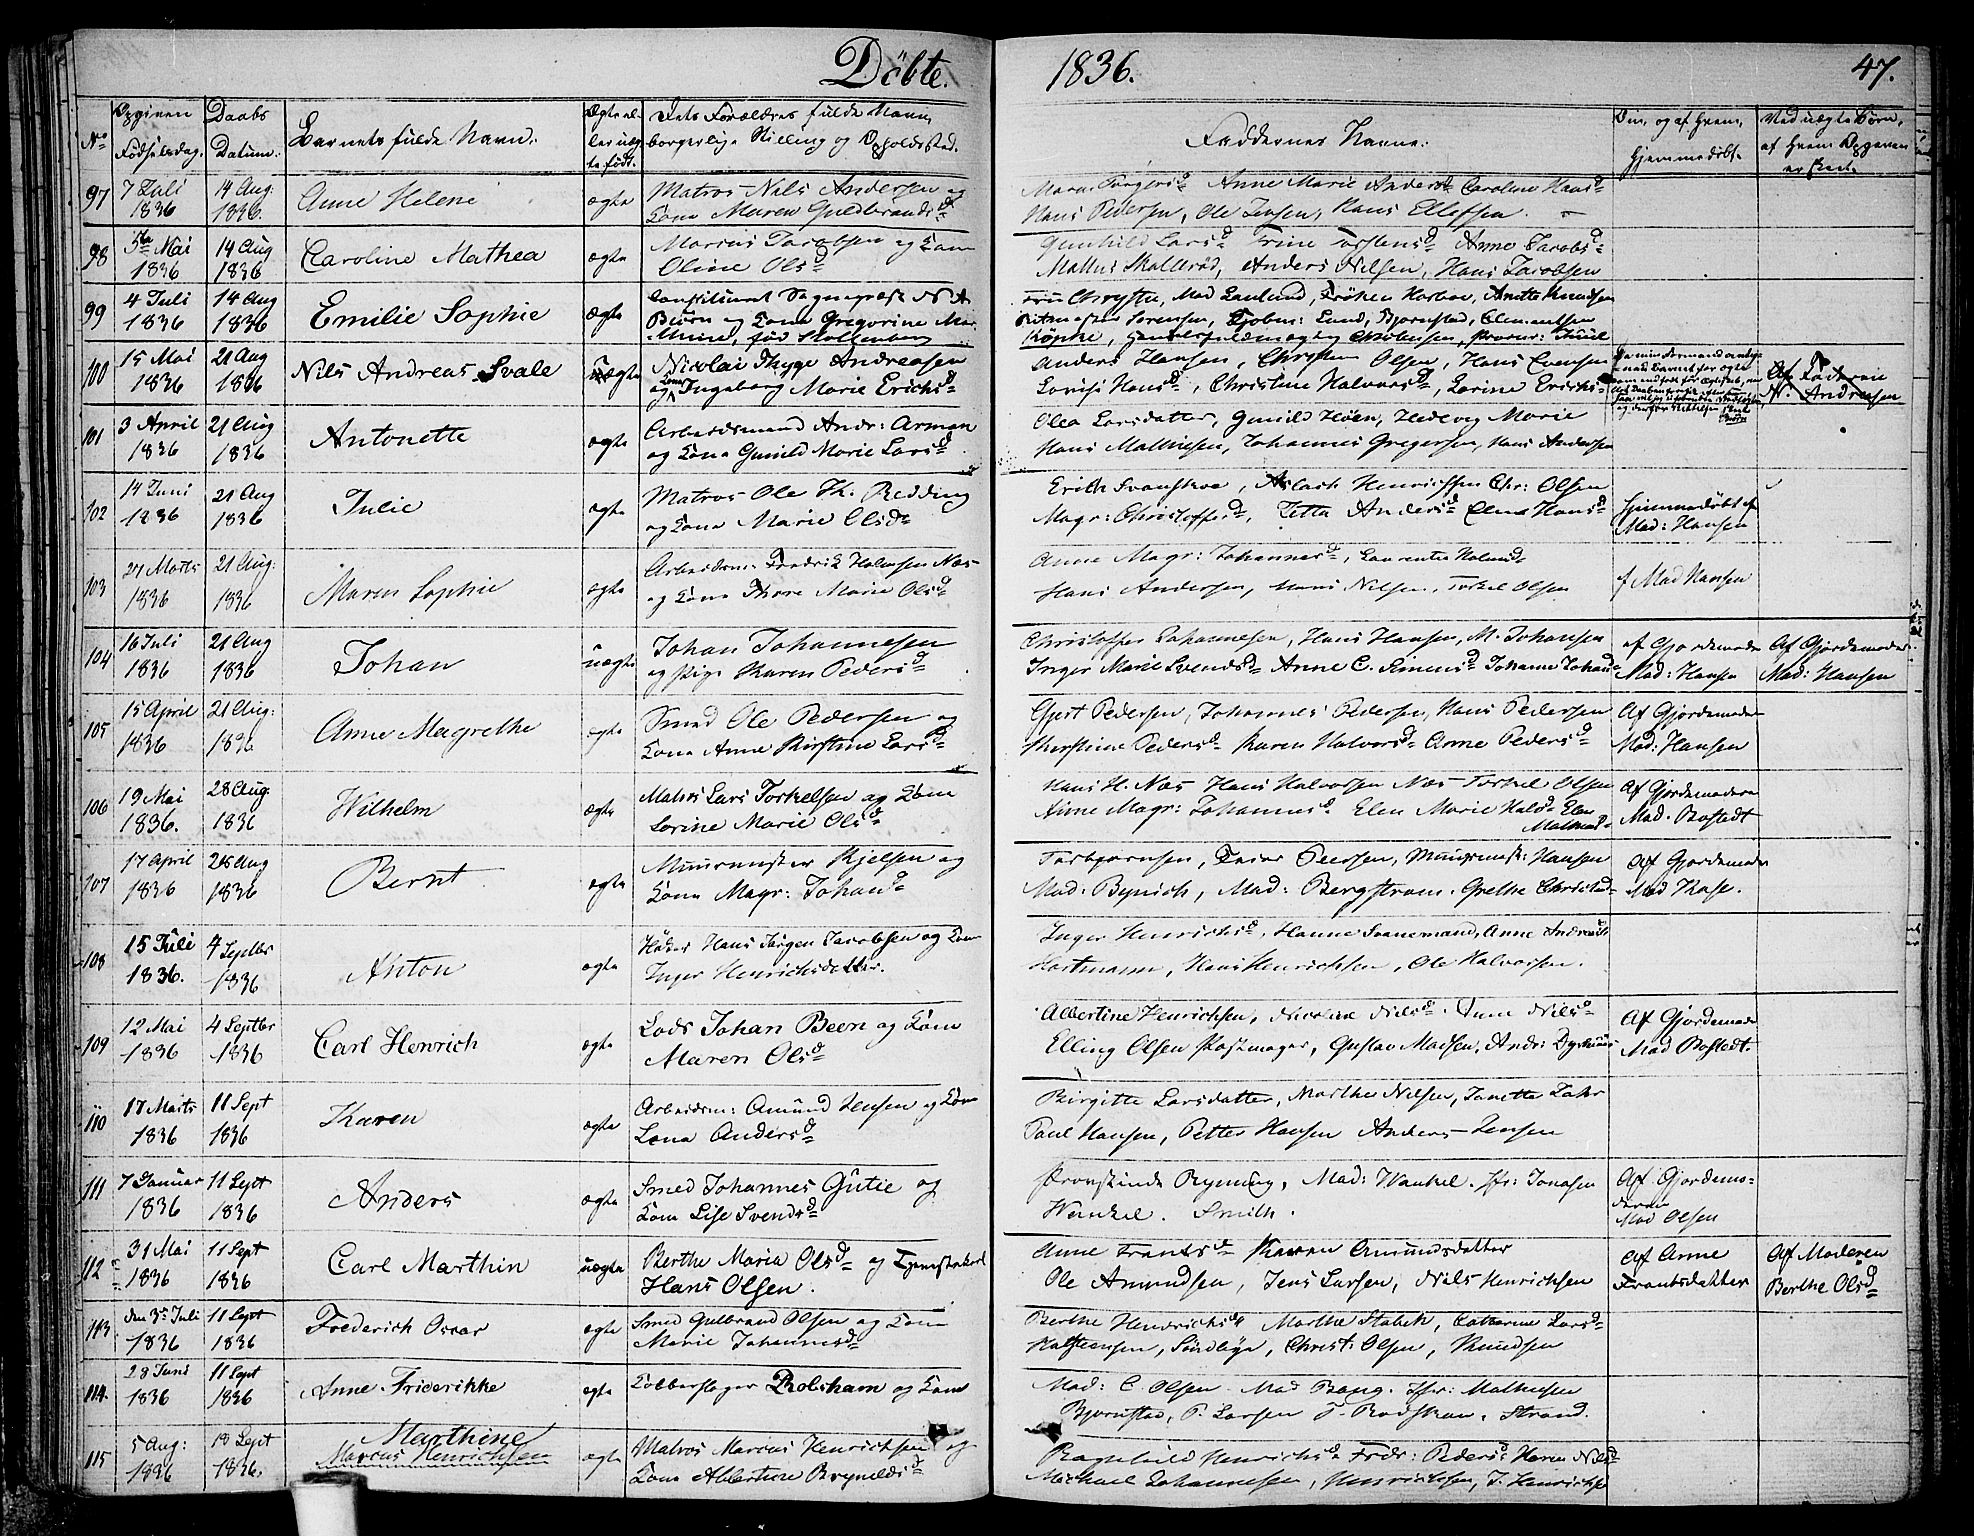 Döbte.
1836.
47.
No
Opgiven
Födselsdag.
Daabs
Datum.
Barnets fulde Navn.
Ægte el-
ler uæg-
te födt.
Dets Forældres fulde Navn,
borgerlige Stilling og Opholdssted.
Faddernes Navne.
og af Hvem,
Hjemmedöbt.
Ved uægte Börn,
af Hvem Opgaven
er skeet.
97
7 Juli
1836
14 Aug.
1836.
Anne Helene
ægte
Matros Nils Andersen og
Kona Maren Guldbrandsd
Anne Marie Andersd Caroline Hansd
Hans Pedersen, Ole Jensen, Hans Ellefsen.
98
5te Mai
1836
14 Aug
1836
Caroline Mathea
ægte
Marius Jacobsen og Kone
Oline Olsd
Gunhild Larsd Trine Torstensd Anne Jacobsd
Skallerød, Anders Nilsen, Hans Jacobsen
99
4 Juli
1836
14 Aug
1836
Emilie Sophie
ægte
Constitueret Sogneprest N. A.
Biörn og Kona Gregorine
Minine, föd Stoltenberg
Mad Lund, Fröken Anette Knudsen
Sörensen, Lund, Bjornstad, Clementsen
Köpke,
100
15 Mai
1836
21 Aug
1836
Nils Andreas Svale
uægte
Nicolai Thyge Andreasen
og Kone Ingeborg Marie Erichsd
Anders Hansen, Olsen, Hans Evensen
Lovise Hansd, Christine Halvorsd, Lorine Erichs-
Af Faderen
N. Andreasen
101
3 April
1836
21 Aug
1836
Antonette
ægte
Arbeidsmand Andr: Arman
og Kona Gunild Marie Larsd
Olea Larsdatter, Gunild Höen, Hedevig Marie
Hans Mathiesen, Johannes Gregersen, Hans Andersen
102
14 Juni
1836
21 Aug
1836
Julie
ægte
Matros Ole Th. Redding
og Kona Marie Olsd
Erik Svanskoe, Aslach Henrichsen Chr: Olsen
Magr: Christoffersd, Jetta Andersd Elena Hansd
Hjemmedöbt af
Mad: Hansen
103
27 Marts
1836
21 Aug:
1836
Maren Sophie
ægte
Arbeidsm. Fredrik Halvorsen Næs
og Kona Thore Marie Olsd
Anne Magr: Johannesd, Laurentia
Hans Andersen, Hans Nilsen, Torkel Olsen
f Mad Hansen
104
16 Juli
1836
21 Aug
1836
Johan
uægte
Johan Johannesen
og Pige Karen Pedersd
Christoffer Johannesen, Hans Hansen, M. Johansen
Inger Marie Svendsd Anne C. Simensd Johanne Johand
af Gjordemoder
Mad: Hansen
Af Gjordemoder
Mad: Hansen
105
15 April
1836
21 Aug:
1836
Anne Magrethe
ægte
Smed Ole Pedersen og
Kona Anne Kirstine Larsd
Gjert Pedersen, Johannes Pedersen, Hans Pedersen
Pedersd Karen Halvorsd Anne Pedersd
Af Gjordemoder
Mad: Hansen
106
19 Mai
1836.
28 Aug.
1836
Wilhelm
ægte
Matros Lars Torkelsen og Kone
Lorine Marie Olsd
Hans H. Næs Hans Halvorsen Næs Torkel Olsen
Anne Magr: Johannesd Elen Marie Halvd Elen
Af Gjordemoderen
Mad. Bostedt
107
17 April
1836
28 Aug
1836
Bernt
ægte
Muurmester Kjelsen og
Kona Magr: Johand
Torbjornsen, Peersen, Muurmest: Hansen
Mad: Bynich, Mad: Bergstrøm. Grethe Christd
Af Gjordemoder
Mad Kase.
108
15 Juli
1836.
4 Septbr
1836
Anton
ægte
Hans Jörgen Jacobsen og Kone
Inger Henrichsdatter.
Inger Henrichsd, Hanne Svanemand, Anne
Hartmann, Hans Henrichsen, Ole Halvorsen.
109
12 Mai
1836
4 Septbr
1836
Carl Henrich
ægte
Lods Johan Been og Kone
Maren Olsd
Albertine Henrichsen, Nicoline Nilsd. Anne Nilsd
Elling Olsen Postmager, Gustav Madsen, Andr:
Af Gjordemoder
Mad Bostedt.
110
17 Marts
1836
11 Sept
1836
Karen
ægte
Arbeidsm: Amund Jensen og Kone
Lena Andersd
Birgitte Larsdatter, Marthe Nilsen, Janette Lahr
Paul Hansen, Petter Hansen Anders Jensen
111
7 Januar
1836
11 Sept
1836
Anders
ægte
Smed Johannes Gutie og
Kone Lise Svendsd
Provstinde Rynning, Mad: Wankel. Hr: Jonasen
Wankel. Smith.
Af Gjordemo-
deren
Mad Olsen
112
31 Mai
1836
11 Sept
1836
Carl Marthin
uægte
Berthe Maria Olsd og Tjenestekarl
Hans Olsen.
Anne Frantsd Karen Amundsdatter
Ole Amundsen, Jens Larsen, Nils Henrichsen
Af Anne
Frantsdatter
Af Moderen
Berthe Olsd
113
den 3 Juli
1836
11 Sept
1836
Frederich Oscar
ægte
Smed Gulbrand Olsen og Kone
Marie Johannesd
Berthe Hendrichsd Marthe Stabek, Catharine Larsd
Halstensen, Sündbye, Christ: Olsen, Knudsen
114.
28 Juni
1836
11 Sept
1836
Anne Friderikke
ægte
Kobberslager Bolsham og Kone
Mad: C. Olsen Mad Bang. Hr: Mathiesen
Bjornstad, P. Larsen T. Strand.
115
5 Aug:
1836
18 Sept
1836.
Marthine
Marcus Henrichsen
ægte
Matros Marcus Henrichsen og
Kone Albertine Brynildsd
Ragnhild Henrichsd Fredr: Pedersd Karen Nilsd
Michael Johannesen, Henrichsen, J. Henrichse